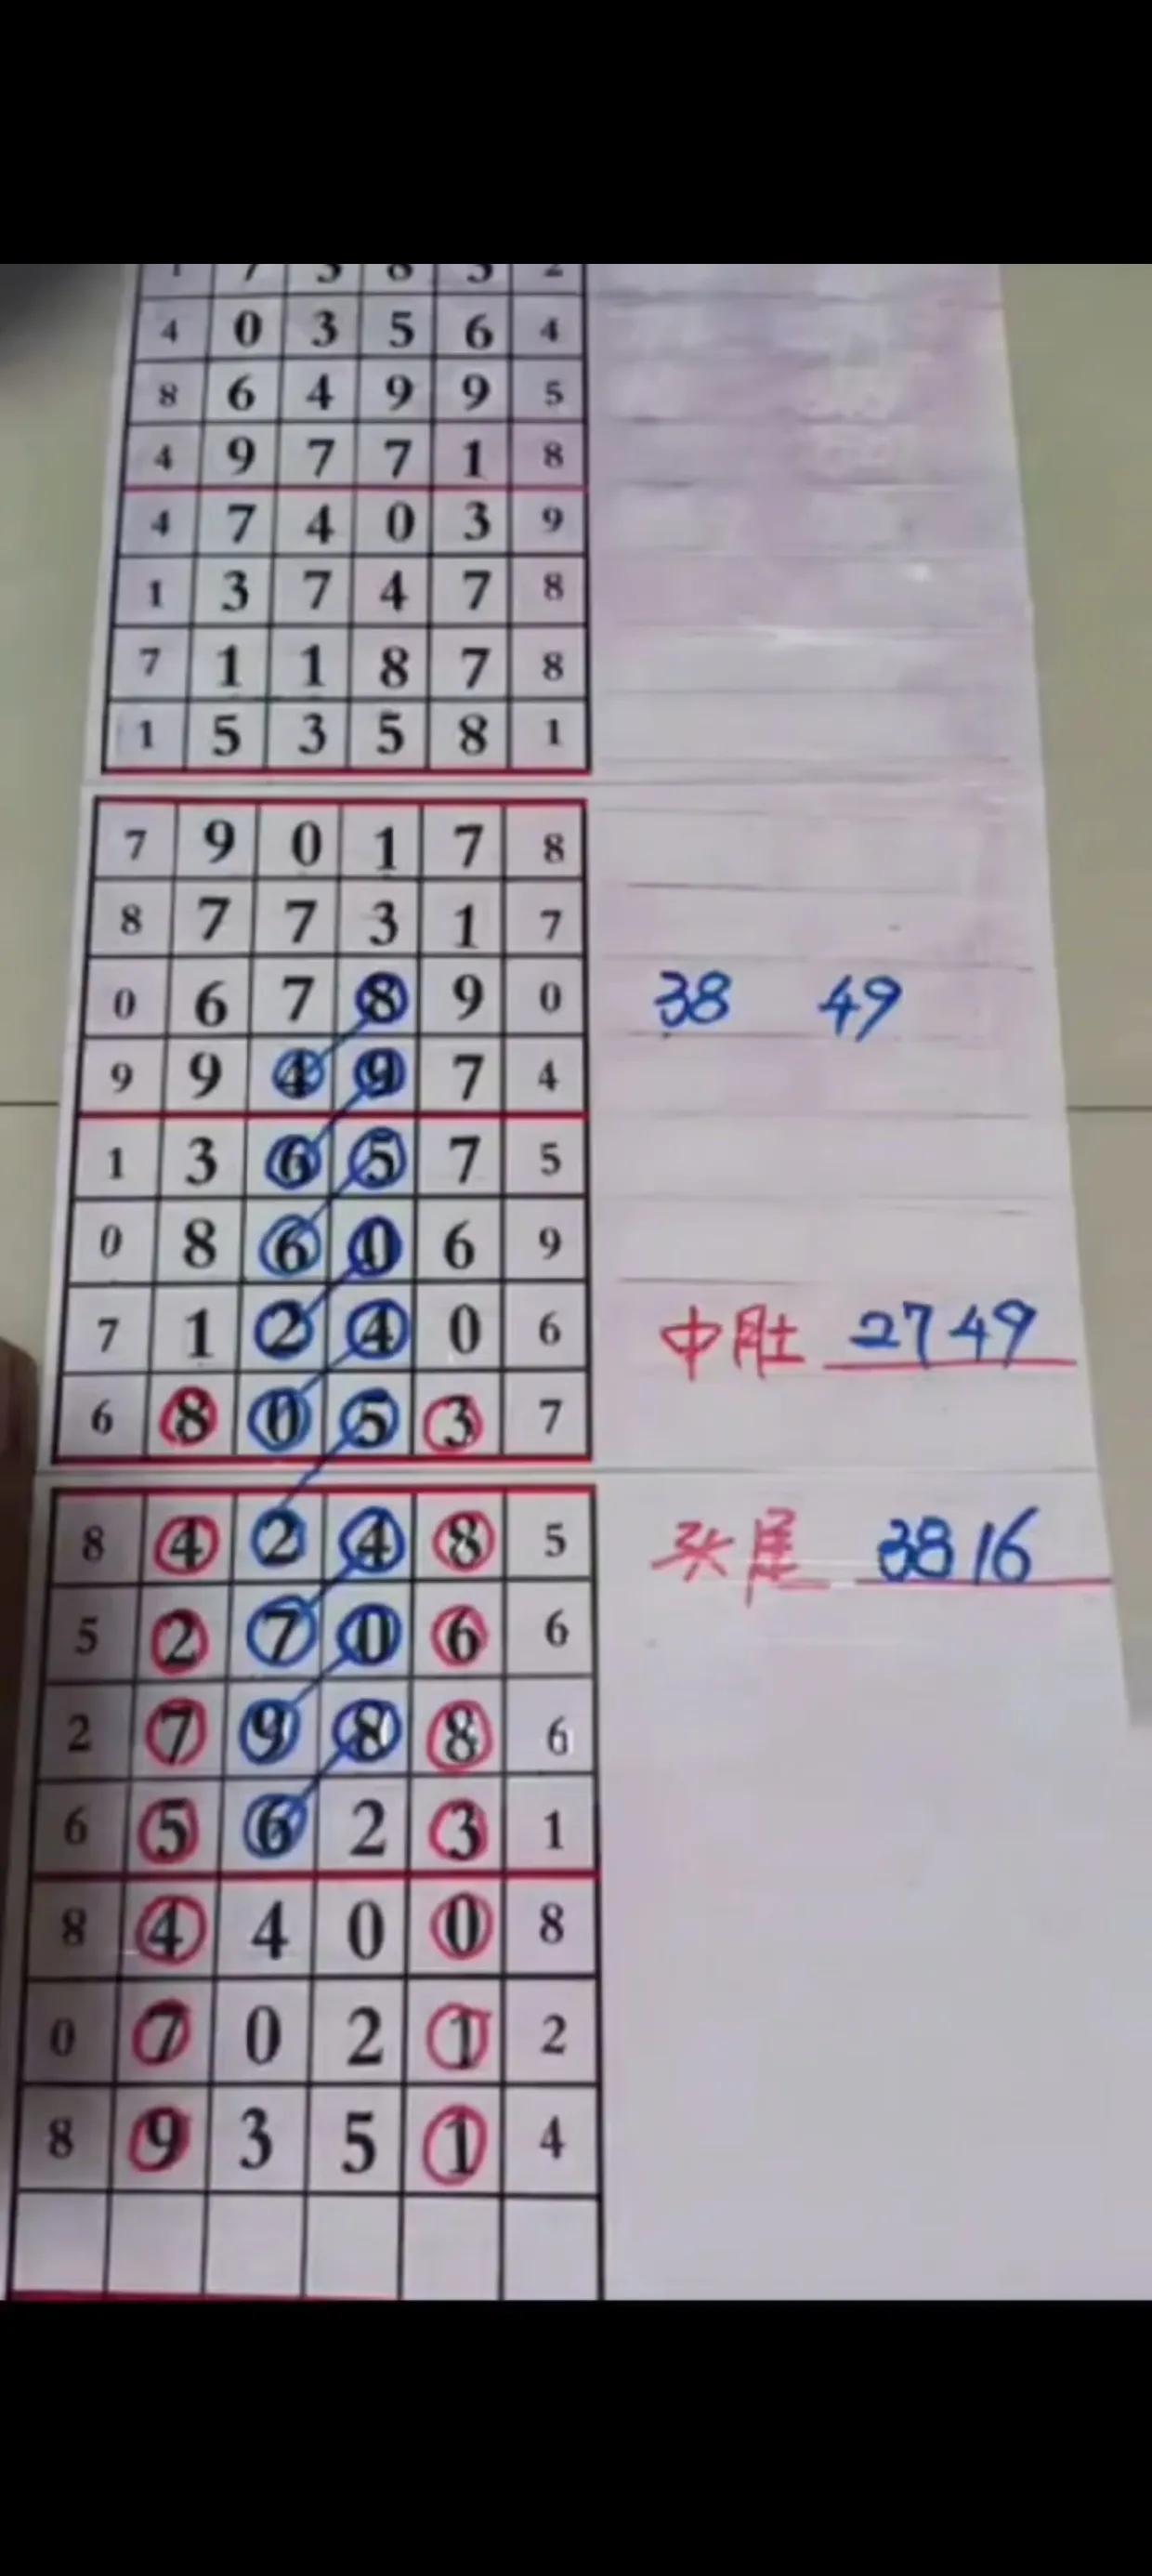 4 0 3 5 6 4
8 6 4 9 9 5
4 9 7 7 1 8
4 7 4 0 3 9
1 3 7 4 7 8
7 1 1 8 7 8
1 5 3 5 8 1
7 9 0 1 7 8
8 7 7 3 1 7
0 6 7 8 9 0 38 49
9 9 4 9 7 4
1 3 6 5 7 5
0 8 6 0 6 9
7 1 2 4 0 6 中肚 2749
6 8 0 5 3 7
8 4 2 4 8 5 头尾 3816
5 2 7 0 6 6
2 7 9 8 8 6
6 5 6 2 3 1
8 4 4 0 0 8
0 7 0 2 1 2
8 9 3 5 1 4